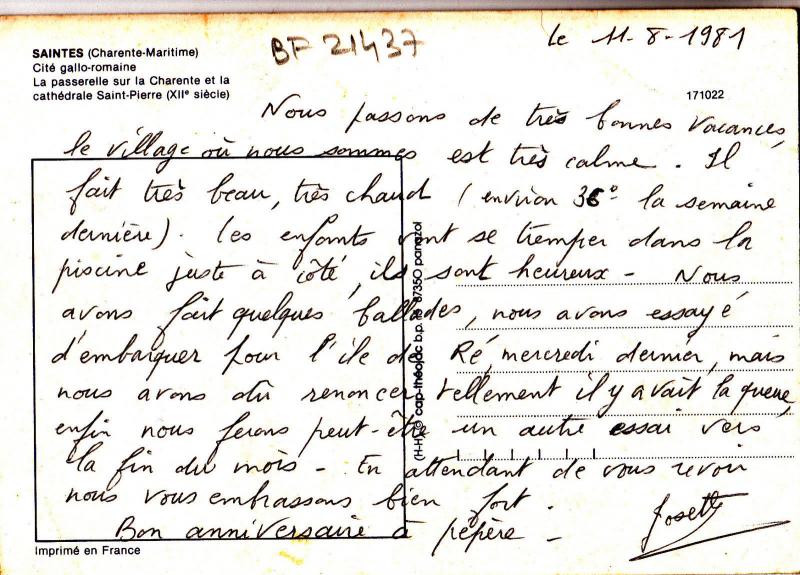 SAINTES (Charente-Maritime)
Cité gallo-romaine
La passerelle sur la Charente et la
cathédrale Saint-Pierre (XIIe siècle)
BF 21437
le 11-8-1981
171022
Nous passons de très bonnes vacances,
le village où nous sommes est très calme. Il
fait très beau, très chaud (environ 36° la semaine
dernière). Les enfants vont se tremper dans la
piscine juste à côté, ils sont heureux - Nous
avons fait quelques ballades, nous avons essayé
d'embarquer pour l'île de Ré, mercredi dernier, mais
nous avons dû renoncer tellement il y avait la queue,
enfin nous ferons peut-être un autre essai vers
la fin du mois - En attendant de vous revoir
nous vous embrassons bien fort.
Bon anniversaire à pépère -
Josette
(H-H) © cap-théojac b.p. 87350 panazol
Imprimé en France